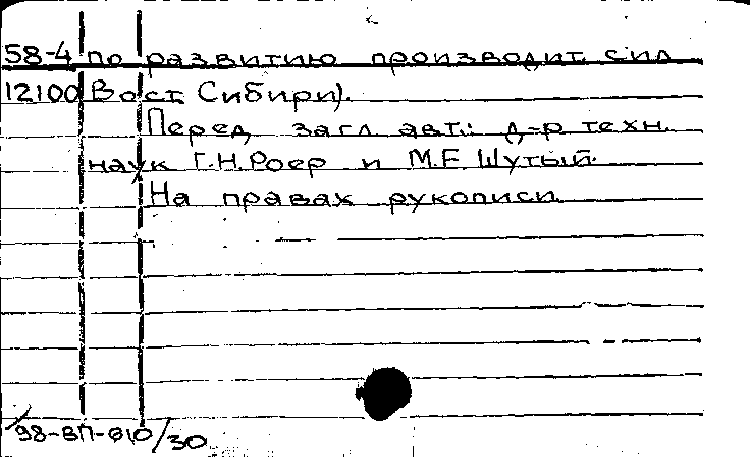 58-4 по развитию производит. сил
12100 Вост. Сибири).
Перед загл. авт.: д-р техн.
наук Г.Н. Роер и М.Е. Шутый.
На правах рукописи.
98-ВП-610/30